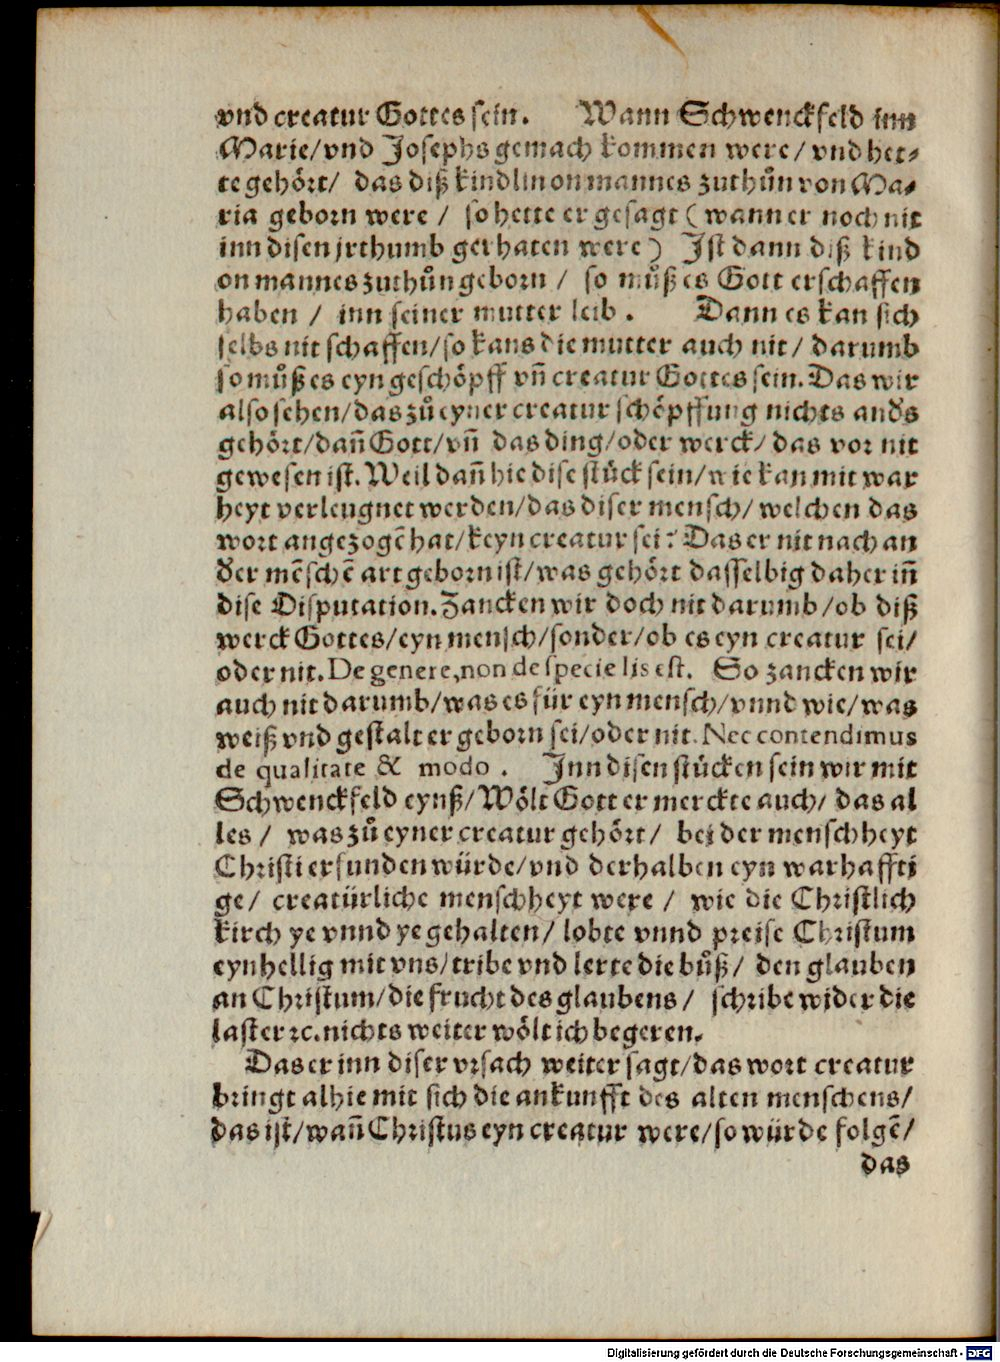 vnd creatur Gottes sein. Wann Schwenckfeld inn
Marie/vnd Josephs gemach kommen were/ vnd het⸗
te gehört/ das diß kindlin on mannes zuthůn von Ma⸗
ria geborn were / so hette er gesagt (wann er noch nit
inn disen jrthumb gerhaten were) Ist dann diß kind
on mannes zuthůn geborn / so můß es Gott erschaffen
haben / inn seiner mutter leib . Dann es kan sich
selbs nit schaffen/so kans die mutter auch nit/ darumb
so můß es eyn geschöpff vñ creatur Gottes sein. Das wir
also sehen/das zů eyner creatur schöpffung nichts anders
gehört/dañ Gott/vñ das ding/oder werck/ das vor nit
gewesen ist. Weil dañ hie dise stück sein/wie kan mit war
heyt verleugnet werden/das diser mensch/ welchen das
wort angezogē hat/keyn creatur sei? Das er nit nach an
der mēschē art geborn ist/was gehört dasselbig daher iñ
dise Disputation. Zancken wir doch nit darumb/ob diß
werck Gottes/eyn mensch/sonder/ob es eyn creatur sei/
oder nit. De genere, non de specie lis est. So zancken wir
auch nit darumb/was es für eyn mensch/vnnd wie/was
weiß vnd gestalt er geborn sei/oder nit. Nec contendimus
de qualitate & modo . Inn disen stücken sein wir mit
Schwenckfeld eynß/Wölt Gott er merckte auch/ das al
les / was zů eyner creatur gehört/ bei der menschheyt
Christi erfunden würde/vnd derhalben eyn warhaffti
ge/ creatürliche menschheyt were / wie die Christlich
kirch ye vnnd ye gehalten/ lobte vnnd preise Christum
eynhellig mit vns/tribe vnd lerte die bůß/ den glauben
an Christum/die frucht des glaubens/ schribe wider die
laster ꝛc. nichts weiter wölt ich begeren.
Das er inn diser vrsach weiter sagt/das wort creatur
bringt alhie mit sich die ankunfft des alten menschens/
das ist/wañ Christus eyn creatur were/so würde folgē/
das
Digitalisierung gefördert durch die Deutsche Forschungsgemeinschaft - DFG